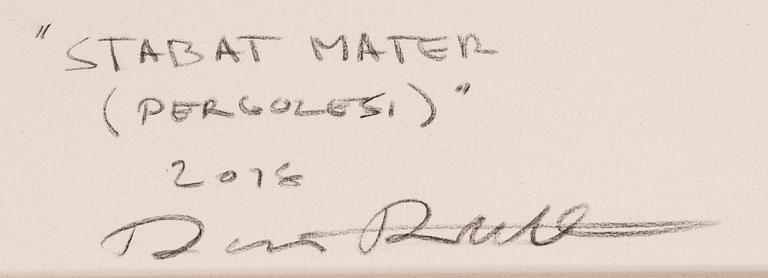 "STABAT MATER
(PERGOLESI)"
2018